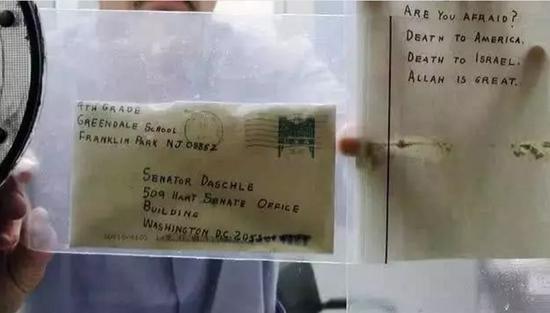 4TH GRADE
GREENDALE SCHOOL
FRANKLIN PARK NJ 08852
SENATOR DASCHLE
509 HART SENATE OFFICE
BUILDING
WASHINGTON D.C. 
ARE YOU AFRAID?
DEATH TO AMERICA.
DEATH TO ISRAEL.
ALLAH IS GREAT.